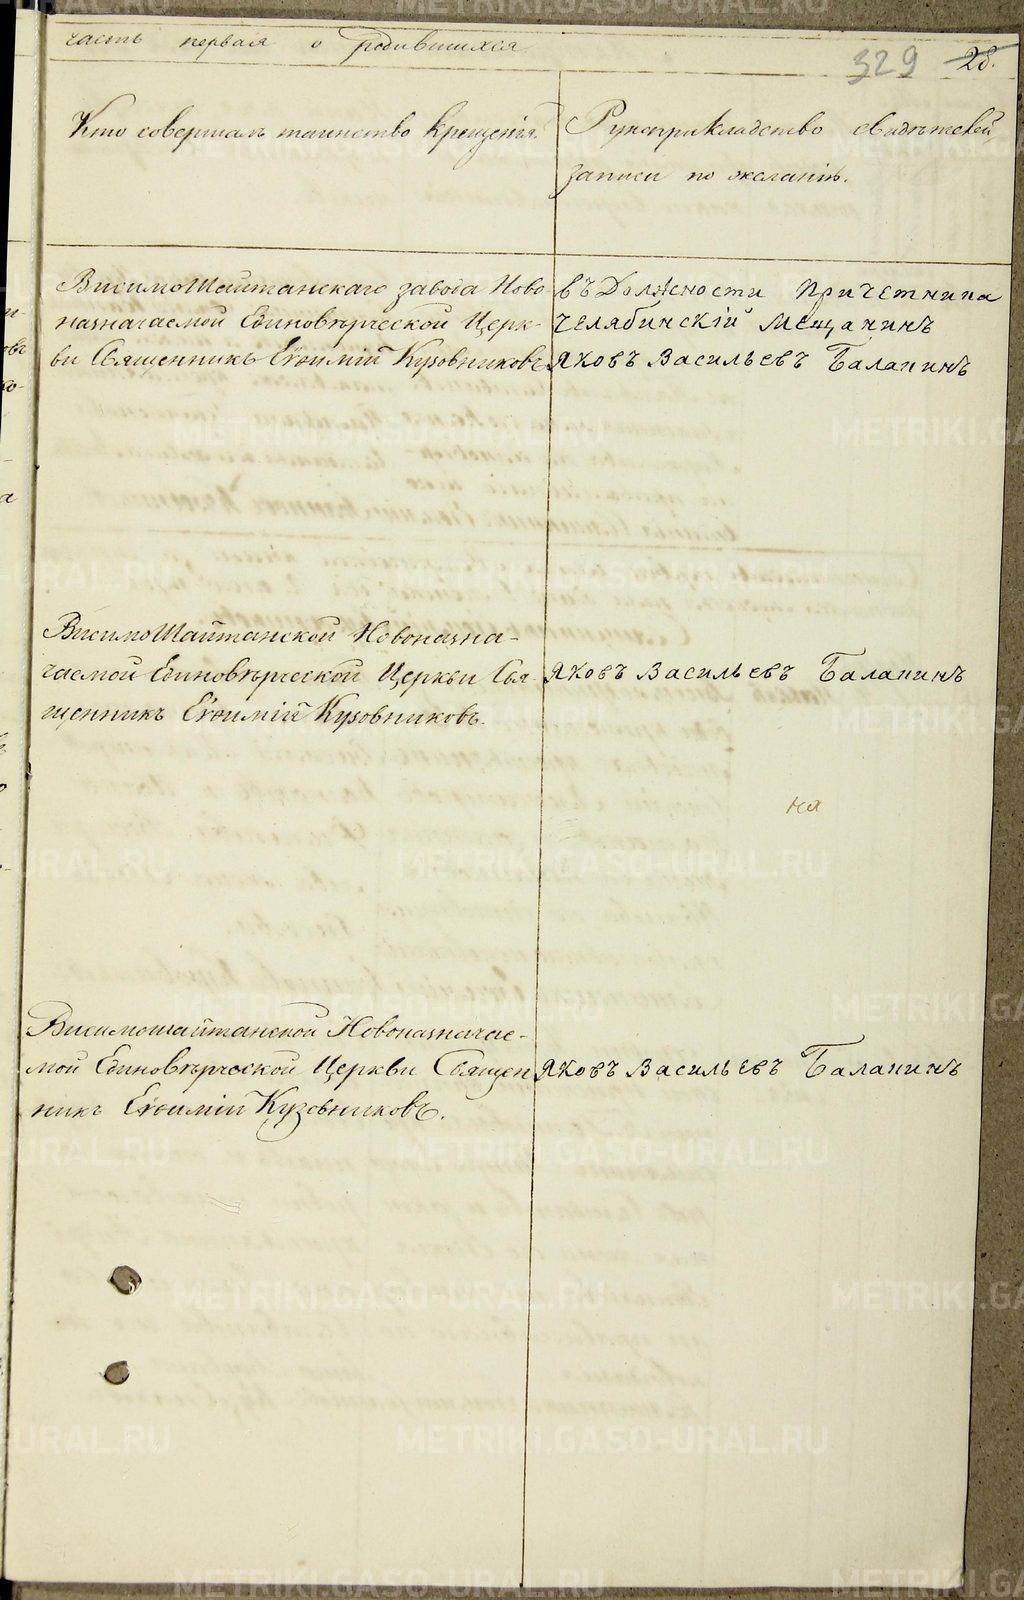 часть первая о родившихся
329 28.
Кто совершалъ таинство крещенія.
Рукоприкладство свидѣтелей
записи по желанію.
ВисимоШайтанскаго завода Ново
назначаемой Единовѣрческой Церк-
ви Священникъ Евѳимій Кузовниковъ
въ Должности причетника
Челябинскій Мещанинъ
Яковъ Васильевъ Баланинъ
ВисимоШайтанской Новоназна-
чаемой Единовѣрческой Церкви Свя-
щенникъ Евѳимій Кузовниковъ.
Яковъ Васильевъ Баланинъ
на
Висимошайтанской Новоназначае-
мой Единовѣрческой Церкви Священ
никъ Евѳимій Кузовниковъ.
Яковъ Васильевъ Баланинъ
METRIKI.GASO-URAL.RU